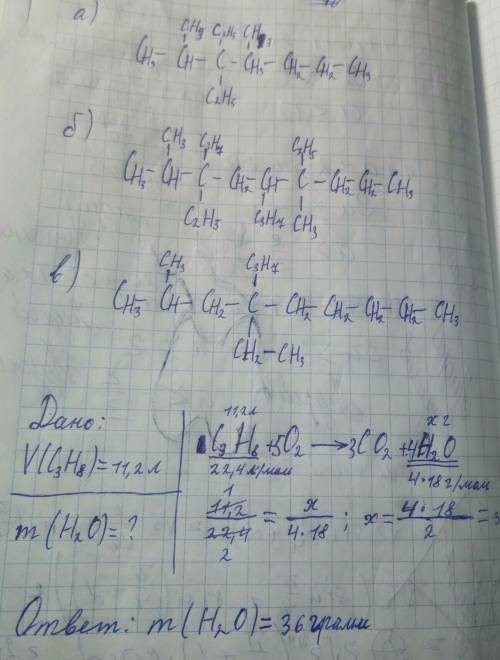 а)
CH3 C2H5 CH3
CH3 – CH – C – CH – CH2 – CH2 – CH3
C2H5
б)
CH3 C3H7 C2H5
CH3 – CH – C – CH2 – CH – C – CH2 – CH2 – CH3
C2H5 C3H7 CH3
в)
CH3 C3H7
CH3 – CH – CH2 – C – CH2 – CH2 – CH2 – CH2 – CH3
CH2 – CH3
Дано:
V(C3H8)=11,2 л
m(H2O)=?
11,2л х г
C3H8 + 5O2 → 3CO2 + 4H2O
22,4 л/моль 4·18 г/моль
1
11,2 / 22,4 = x / 4·18 ; x = 4·18 / 2 = 3
2
Ответ: m(H2O)=36грамм